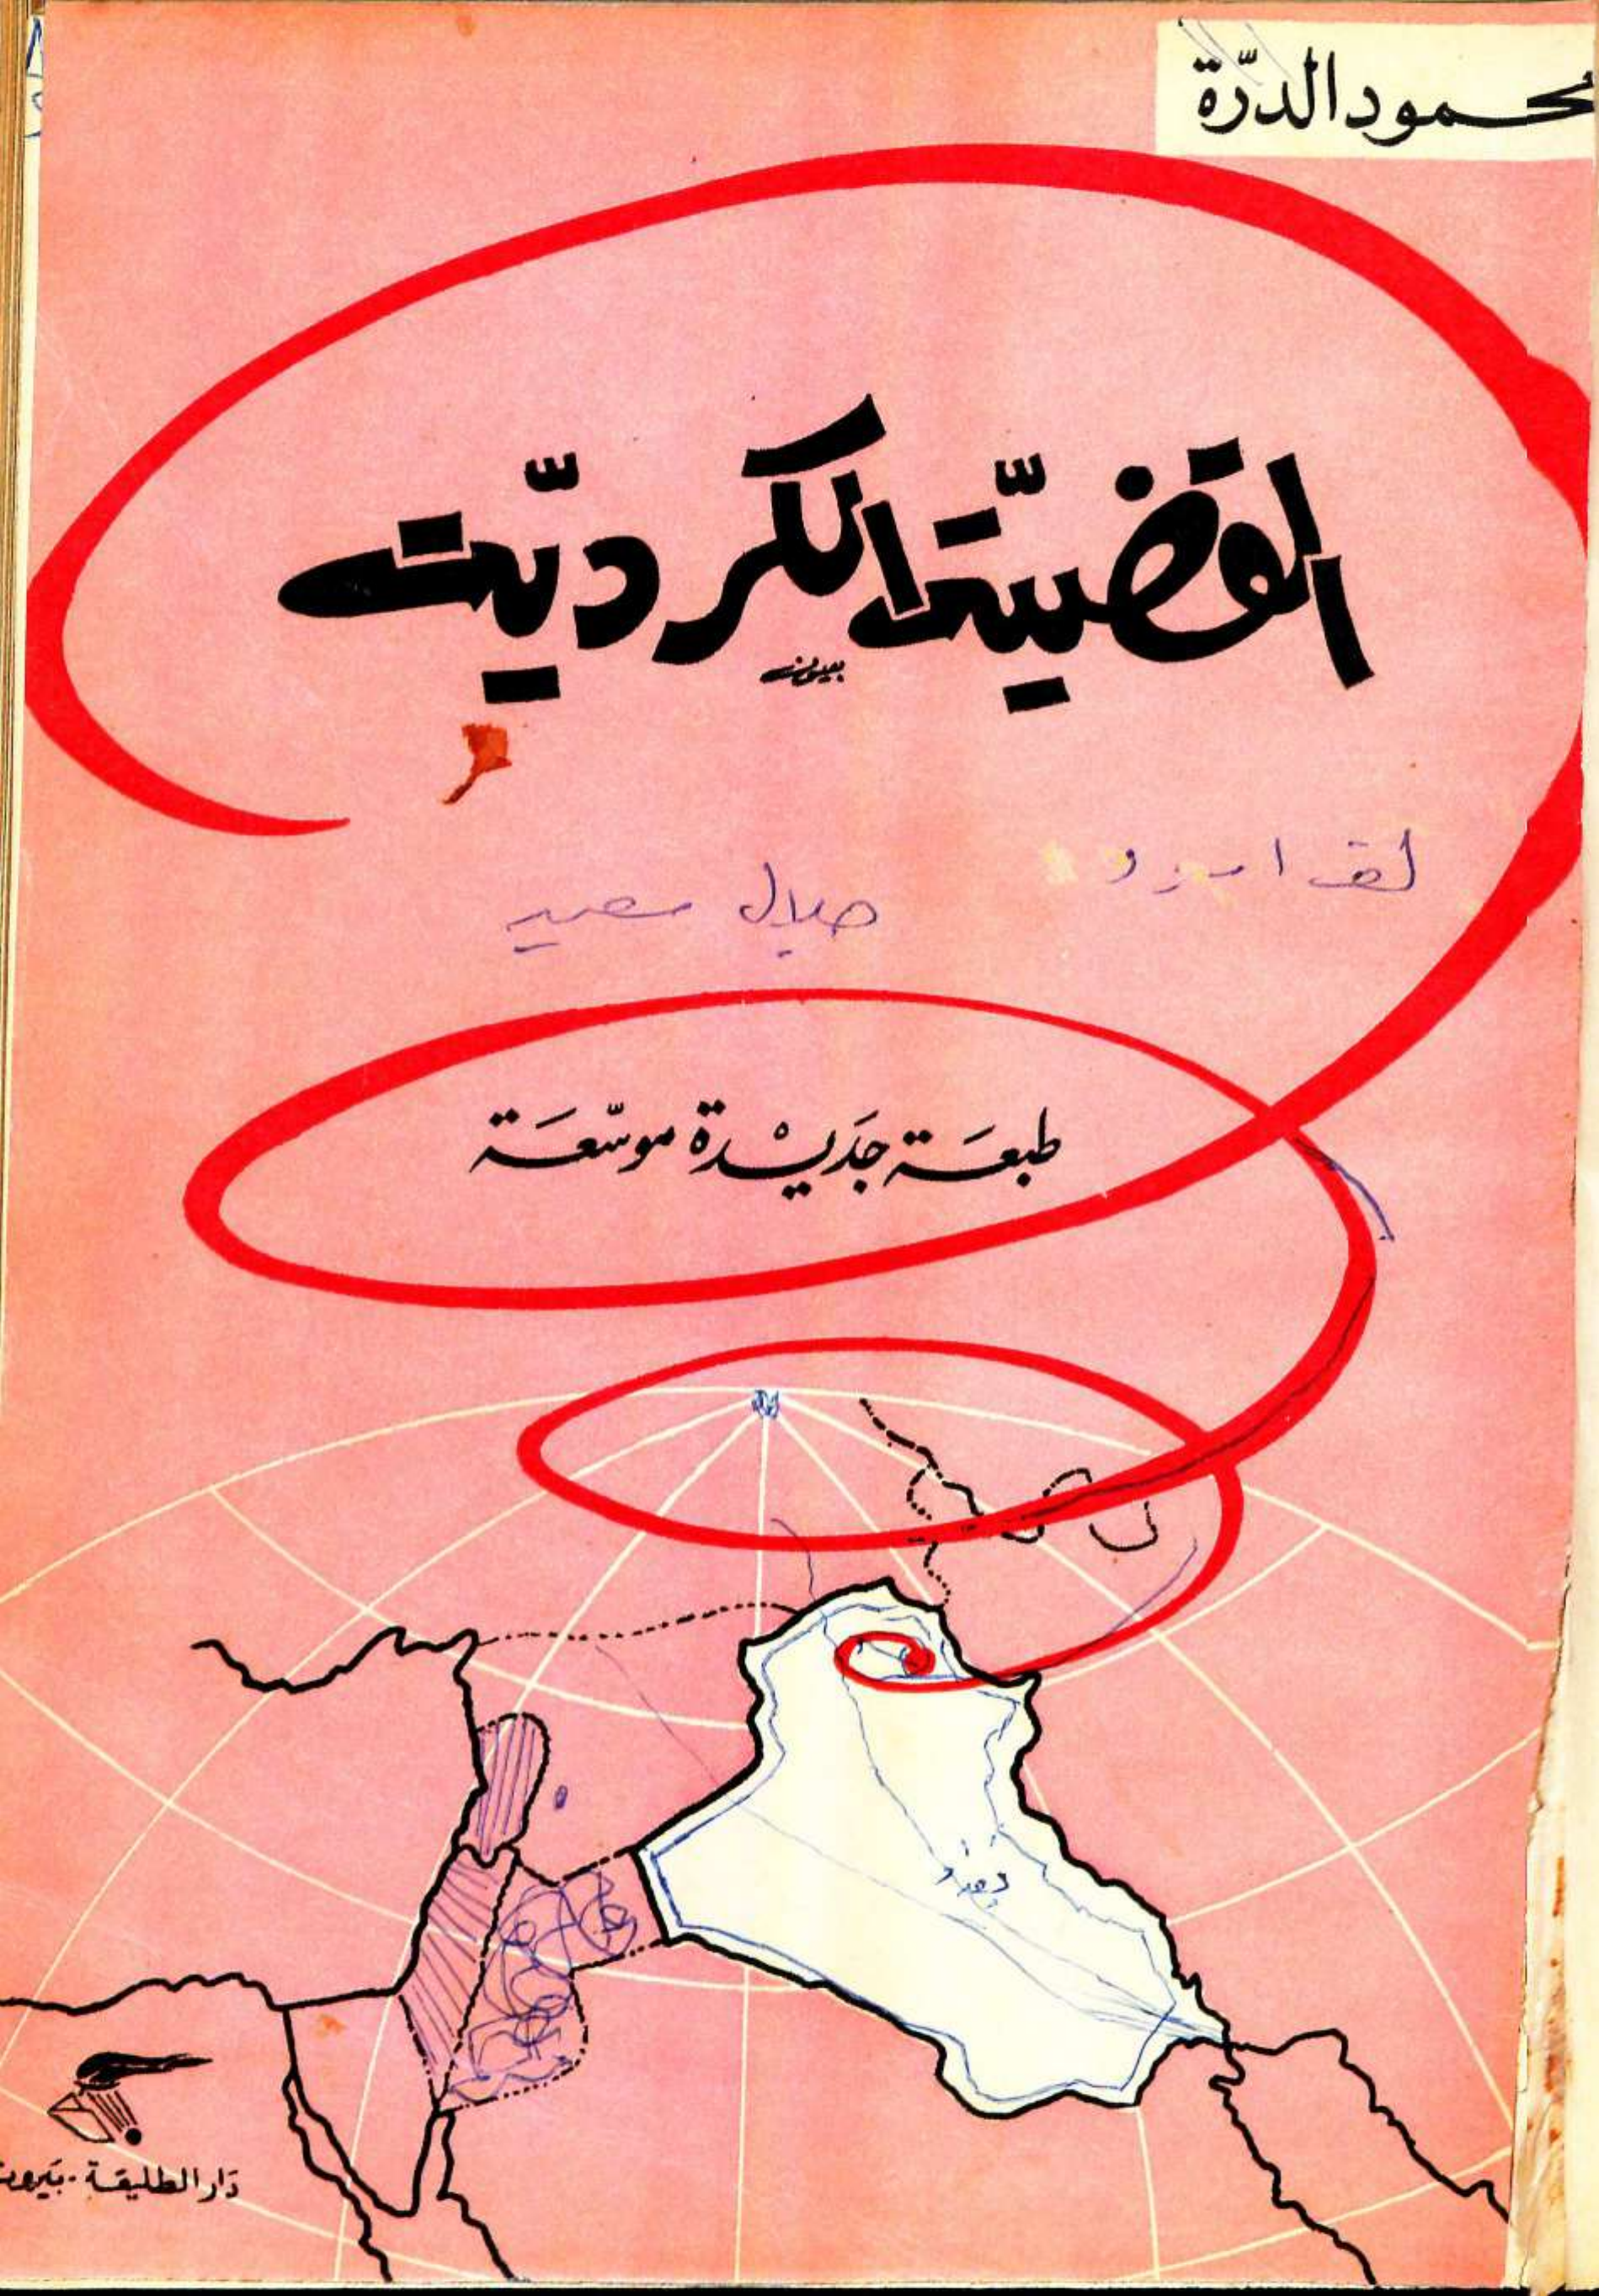 محمود الدرّة
القضيّة الكرديّة
طبعَة جَديْدة موسّعَة
بغداد
دَار الطليعَة - بَيروت